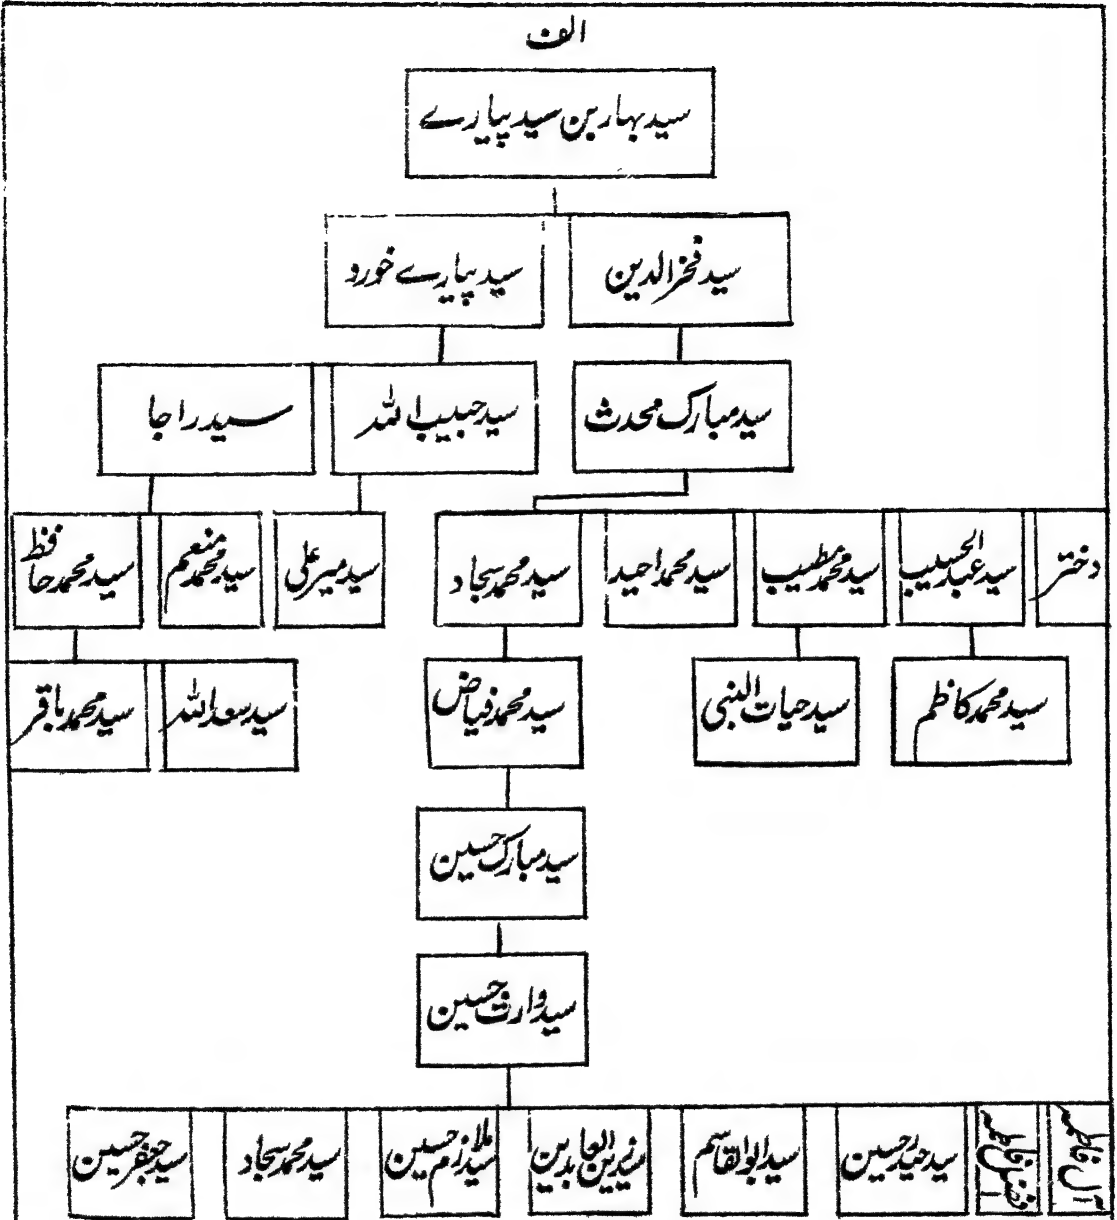 الف
سید بہار بن سید پیارے
سید فخرالدین
سید پیارے خورد
سید مبارک محدث
سید حبیب اللہ
سید راجا
دختر
سید عبدالحسیب
سید محمد طیب
سید محمد احید
سید محمد سجاد
سید میر علی
سید محمد منعم
سید محمد حافظ
سید محمد کاظم
سید حیات النبی
سید محمد فیاض
سید سعد اللہ
سید محمد باقر
سید مبارک حسین
سید وارث حسین
آل فاطمہ
افضل فاطمہ
سید حیدر حسین
سید ابوالقاسم
سید زین العابدین
سید ملازم حسین
سید محمد سجاد
سید جعفر حسین